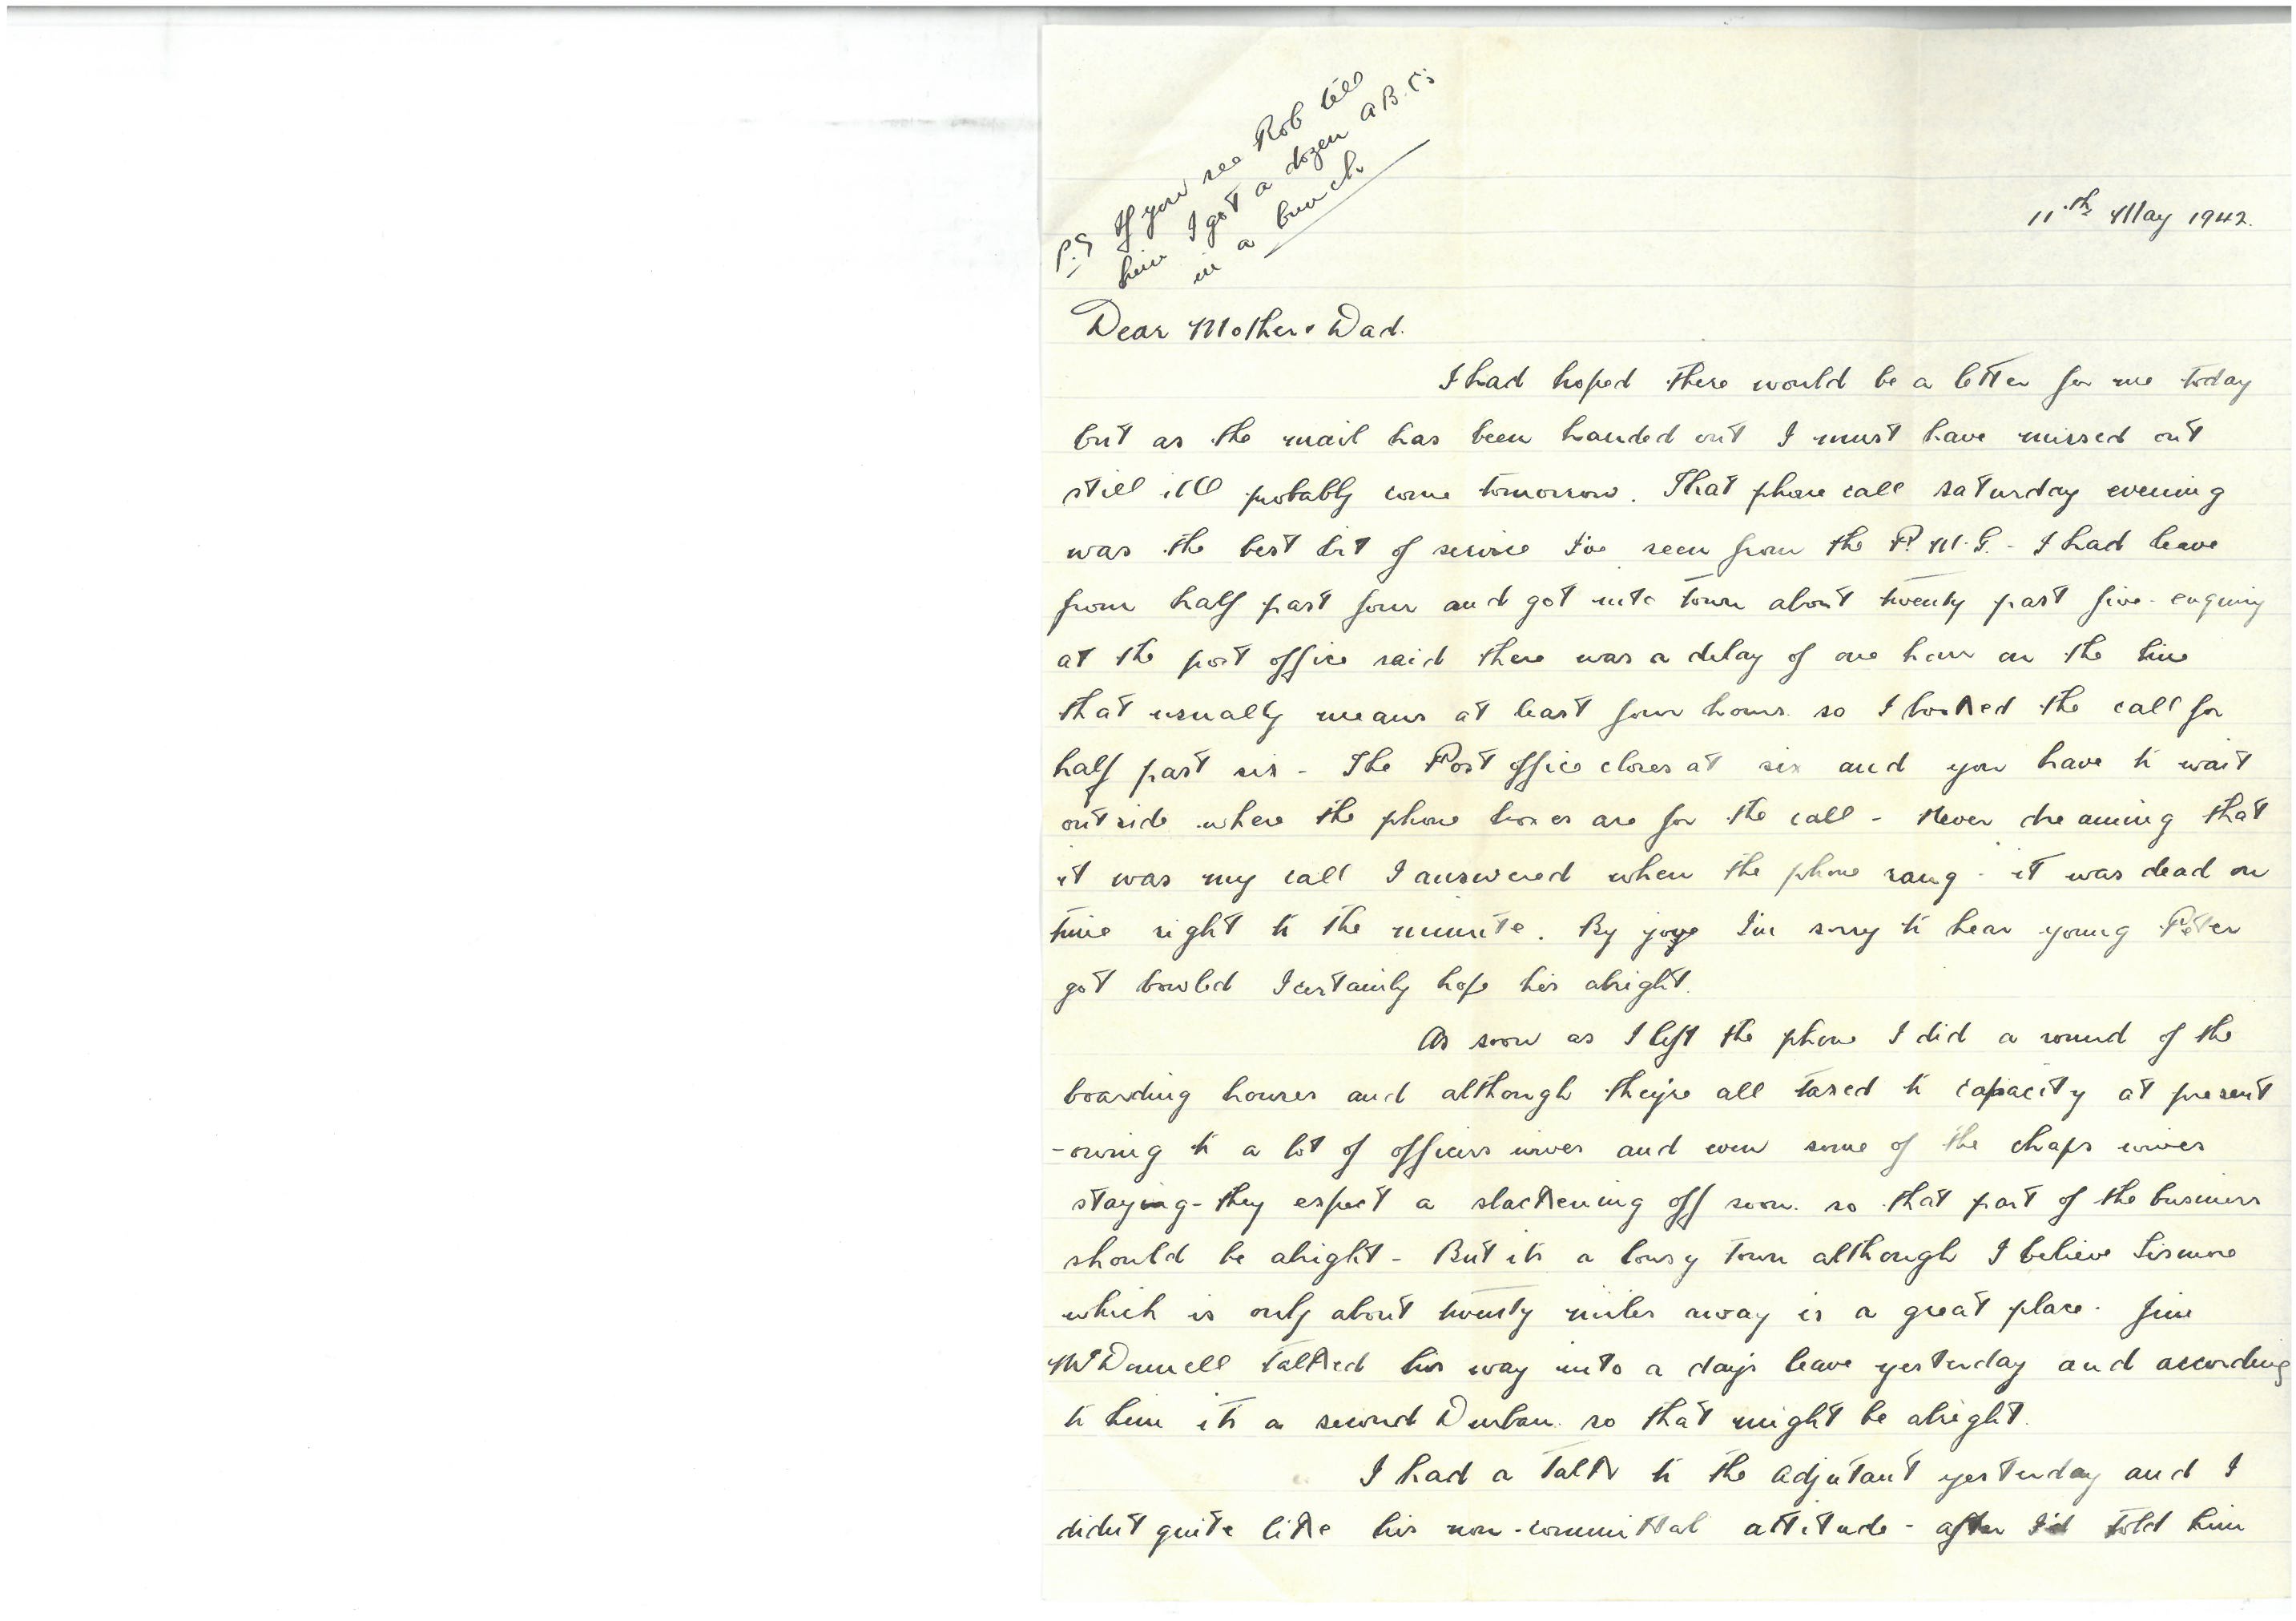 P.S If you see Rob tell
him I got a dozen A.B.C's
in a bunch
11th May 1942.
Dear Mother & Dad.
I had hoped there would be a letter for me today
but as the mail has been handed out I must have missed out
still it'll probably come tomorrow. That phone call saturday evening
was the best bit of service I've seen from the P.M.G. - I had leave
from half past four and got into town about twenty past five - enquiry
at the post office said there was a delay of one hour on the line
that usually means at least four hours so I booked the call for
half past six - The Post office closes at six and you have to wait
outside where the phone boxes are for the call - Never dreaming that
it was my call I answered when the phone rang - it was dead on
time right to the minute. By jove I'm sorry to hear young Peter
got bowled I certainly hope his alright.
As soon as I left the phone I did a round of the
boarding houses and although they're all taxed to capacity at present
- owing to a lot of officers wives and even some of the chaps wives
staying - they expect a slackening off soon. so that part of the business
should be alright - But its a lousy town although I believe Lismore
which is only about twenty miles away is a great place. Jim
McDonnell talked his way into a days leave yesterday and according
to him its a second Durban so that might be alright.
I had a talk to the Adjutant yesterday and I
didn't quite like his non-committal attitude - after I'd told him